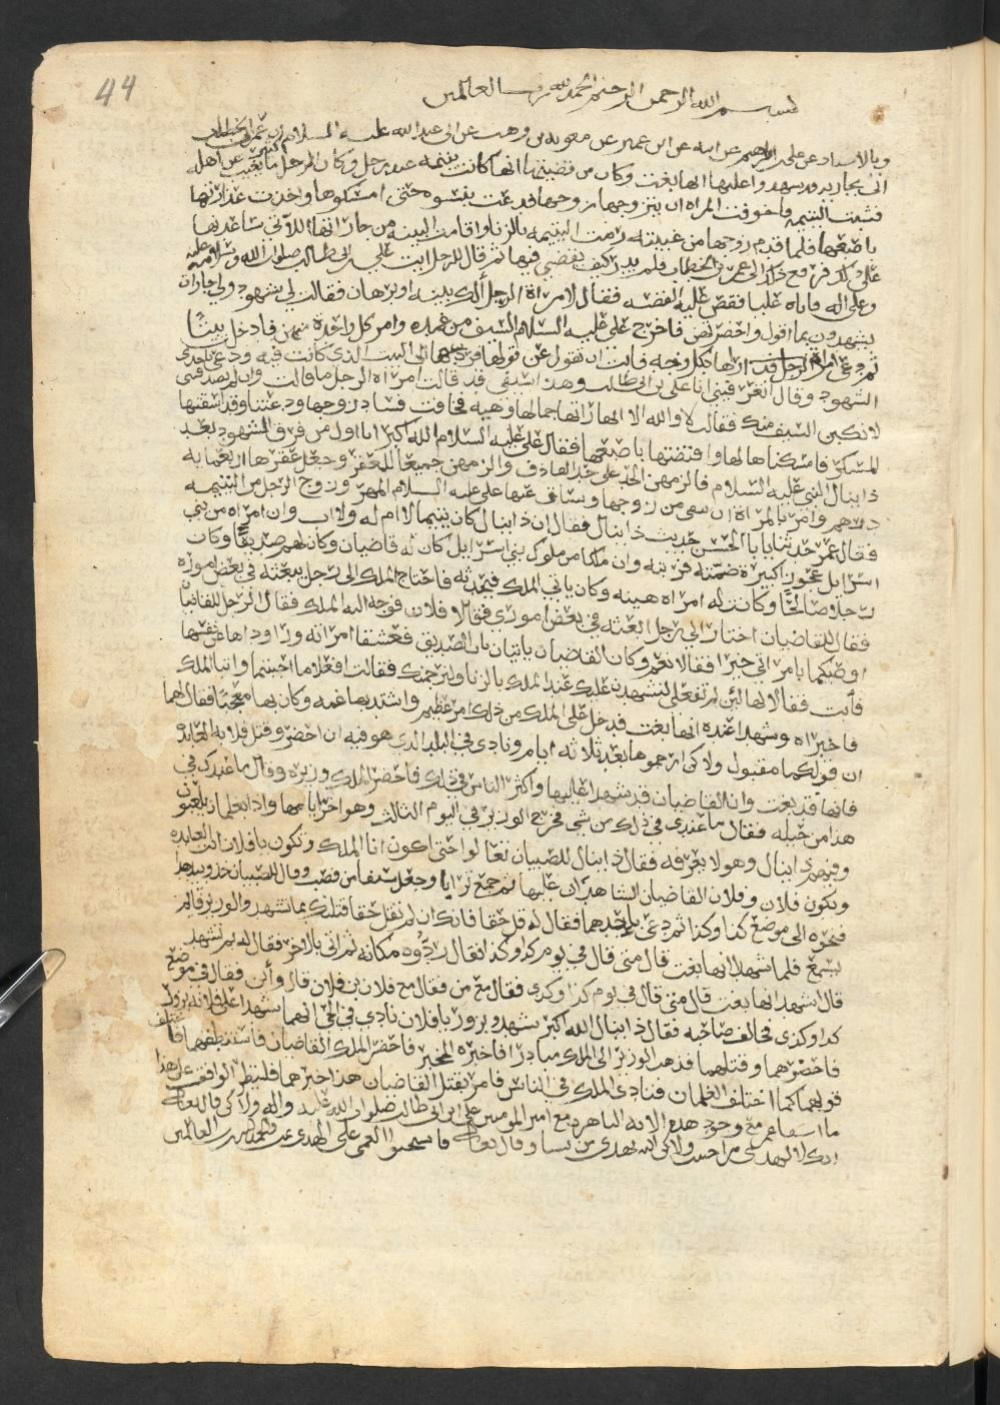 44
بسم الله الرحمن الرحيم الحمد لله رب العالمين
وبالاسناد عن علي بن ابراهيم عن ابيه عن ابن عمير عن معويه بن وهب عن ابي عبد الله عليه السلام ان عمر بن الخطاب
اتي بجاريه وشهد واعليها انها بغت وكان من قضيتها انها كانت يتيمه عند رجل وكان الرجل ما يغيب عن اهله
فشبت اليتيمه فاخوفت المراه ان يتزوجها زوجها فدعت بنسوه حتى امسكوها واخذت عذرتها
باصبعها فلما قدم زوجها من غيبته رمت اليتيمه بالزنا واقامت البينه من جاراتها اللآتي ساعدنها
على ذلك فرفع ذلك الى عمر بن الخطاب فلم يدر كيف يقضي فيها ثم قال للرجل ايت علي بن ابي طالب صلوات الله وسلامه عليه
وعلى اله فاتاه عليا فقص عليه القصه فقال لامراة الرجل ألك بينه او برهان فقالت لي شهود ولي جاران
يشهدون بما اقول واحضرتهن فاخرج علي عليه السلام السيف من غمده وامر كل واحدة منهن فادخل بيتًا
ثم دعى امراة الرجل فدارها بكل وجه فابت ان تقول عن قولها فردها الى البيت الذي كانت فيه ودعى باحدى
الشهود وقال اتعرفيني انا علي بن ابي طالب وهذا سيفي قد قالت امراة الرجل ما قالت وان لم تصدقني
لامكن السيف منك فقالت لا والله الا انها رات جمالها وهيه فخافت فساد زوجها ودعتنا وقد اسقتها
المسكر فامسكناها لها وافتضتها باصبعها فقال علي عليه السلام الله اكبر انا اول من فرق الشهود بعد
دانيال النبي عليه السلام فالزمهن الحد على حد القاذف والزمهن جميعا العقر وجعل عقرها اربعمايه
درهم وامر بالمراة ان تنفى من زوجها وساق عنها علي عليه السلام المهر وزوج الرجل من اليتيمه
فقال عمر حدثنا يا با الحسن حديث دانيال فقال ان دانيال كان يتيما لا ام له ولا اب وان امراه من بني
اسرايل عجوز كبيرة ضمته فربته وان ملكا من ملوك بني اسرايل كان له قاضيان وكان لهم صديقًا وكان
رجلا صالحًا وكانت له امراه هينه وكان ياتي الملك فيحدثه فاحتاج الملك الى رجل يبعثه في بعض اموره
فقال للقاضيان اختارا لي رجل ابعثه في بعض اموري فقالا فلان فوجه اليه الملك فقال الرجل للقاضيان
اوصيكما بامراتي خيرا فقالا نعم وكان القاضيان ياتيان باب الصديق فعشقا امراته وراوداها عن نفسها
فابت فقالا لها لئن لم تفعلي لنشهدن عليك عند الملك بالزنا ولنرجمنك فقالت افعلا ما احببتما واتيا الملك
فاخبراه وشهدا عنده انها بغت فدخل على الملك من ذلك امر عظيم واشتد بها غمه وكان بها معجبًا فقال لهما
ان قولكما مقبول ولاكن ارجموها بعد ثلاثه ايام ونادى في البلد الذي هو فيه ان احضروا قتل فلانه العابده
فانها قد بغت وان القاضيان قد شهدا عليها واكثر الناس في ذلك فاحضر الملك وزيره وقال ما عندك في
هذا من حيله فقال ما عندي في ذلك من شي فخرج الوزير في اليوم الثالث وهو اخر ايامها واذا بغلمان يلعبون
وفيهم دانيال وهو لا يعرفه فقال دانيال للصبيان تعالوا حتى اكون انا الملك وتكون يا فلان انت العابده
وتكون فلان وفلان القاضيان الشاهدان عليها ثم جمع ترابا وجعل سيفا من قصب وقال للصبيان خذوا بيد هذا
فنحوه الى موضع كذا وكذا ثم دعى باحدهما فقال له قل حقا فانك ان لم تقل حقا قتلتك بما تشهد والوزير قائم
يسمع فلما شهد انها بغت قال متى قال في يوم كذا وكذا فقال ردّوه مكانه ثم اتي بالاخر فقال له بم تشهد
قال اشهد انها بغت قال متى قال في يوم كذا وكذى فقال مع من فقال مع فلان بن فلان قال واين فقال في موضع
كدا وكذى فخالف صاحبه فقال دانيال الله اكبر شهدو بزور يا فلان نادي في الحي انهما شهدا على فلانه بزور
فاحضرهما وقتلهما فذهب الوزير الى الملك مبادرا فاخبره الخبر فاحضر الملك القاضيان فاستنطقهما فاختلف
قولهما كما اختلف الغلمان فنادى الملك في الناس فامر بقتل القاضيان هذا خبرهما فلينظر الواقف على هذا
مع وجود هذه الايه الباهره مع امير المومنين علي ابن ابي طالب صلوات الله عليه واله ولاكن قال الله تعالى
انك لا تهدي من احببت ولاكن الله يهدي من يشا وقال تعالى فاستحبوا العمى على الهدى والحمد لله رب العالمين